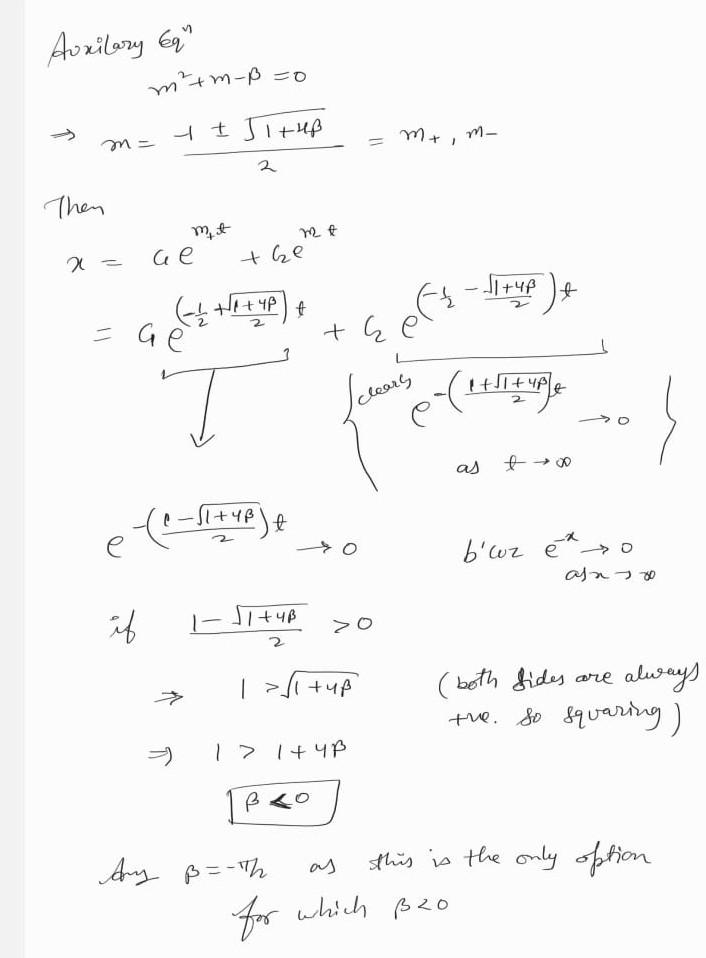 Auxilary Eqⁿ
m² + m - β = 0
⇒ m = -1 ± √1+4β / 2 = m+ , m-
Then
x = c₁e^{m+t} + c₂e^{m t}
= c₁e^{(-1/2 + √1+4β/2)t} + c₂e^{(-1/2 - √1+4β/2)t}
{ clearly e^{-(1+√1+4β/2)t} → 0 }
as t → ∞
e^{-(1-√1+4β/2)t} → 0
b'coz e^{-x} → 0
as x → ∞
if 1 - √1+4β / 2 > 0
⇒ 1 > √1+4β (both sides are always
+ve. so squaring)
⇒ 1 > 1+4β
β < 0
Any β = -π/2 as this is the only option
for which β < 0